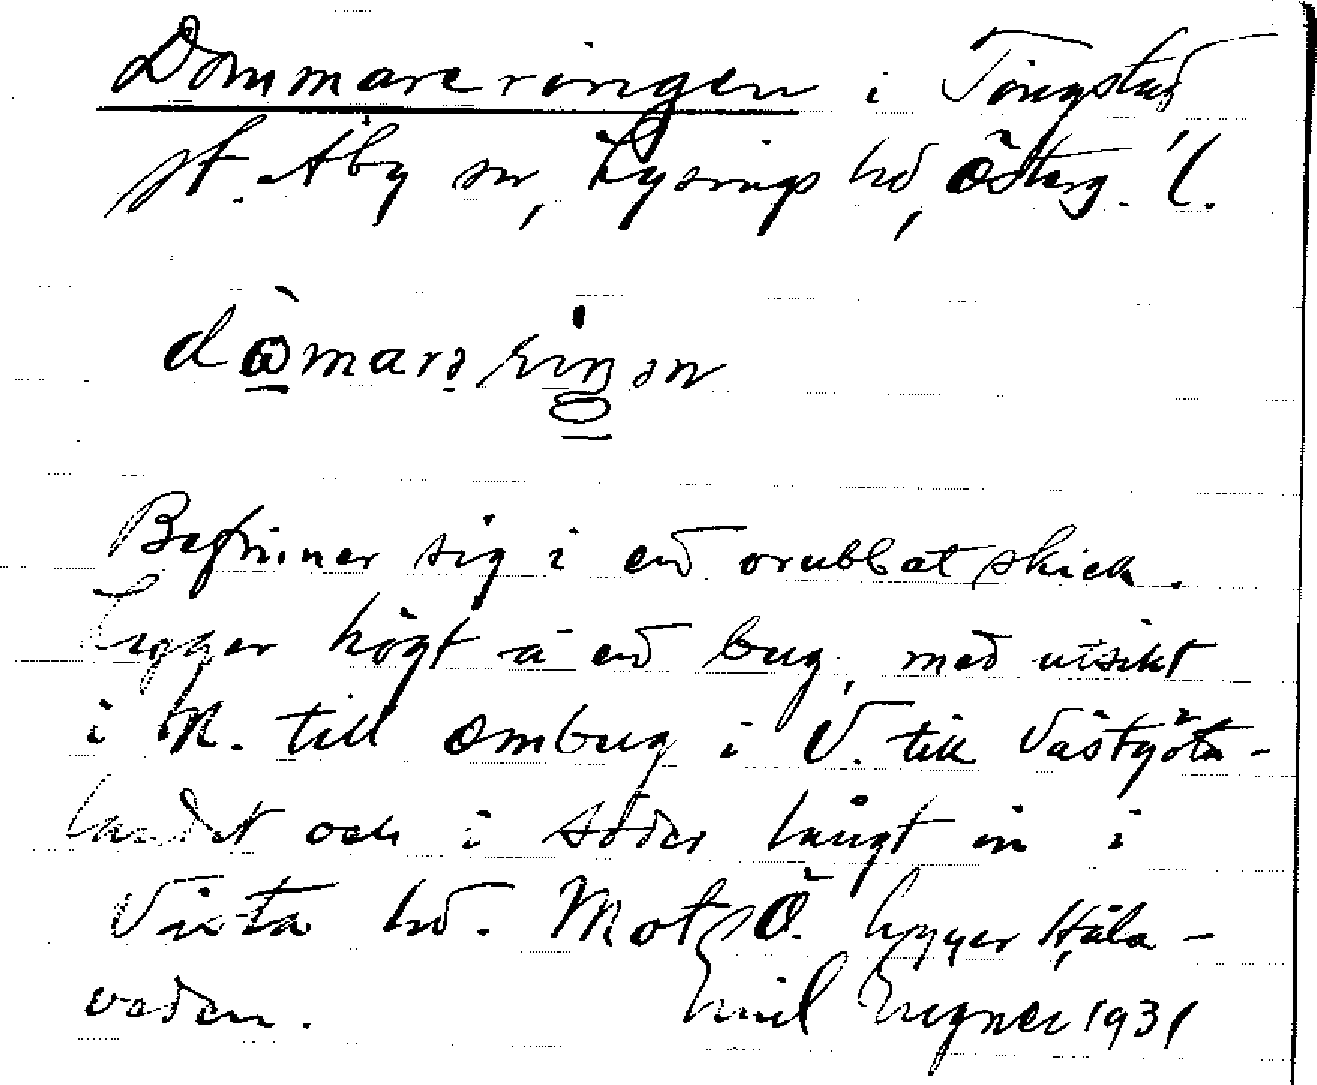 Dommareringen i Tingstad
st. Åby sn, Lysings hd, Österg. l.
dòmarəriŋən
Befinner sig i end orubbat skick.
Ligger högt å end bug, med utsikt
i N. till Omberg i V. till Västgöta-
landet och i söder långt in i
Vista hd. Mot sÖ. ligger Håla-
veden. Emil Engner 1931